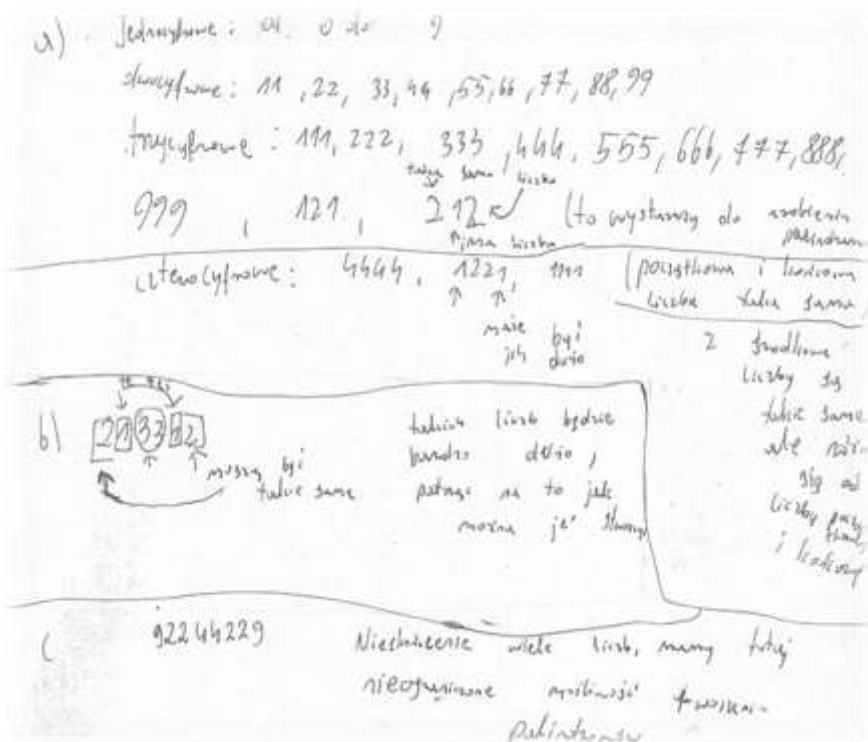 a) Jednocyfrowe: od 0 do 9
dwucyfrowe: 11, 22, 33, 44, 55, 66, 77, 88, 99
trzycyfrowe: 111, 222, 333, 444, 555, 666, 777, 888,
takie same liczba
999, 121, 212 (to wystarczy do zrobienia
inna liczba
czterocyfrowe: 4444, 1221, 1111 (początkowa i końcowa
liczba taka sama
może być
ich dużo
2 środkowe
liczby są
takie same
ale
się od
liczby
i końcowej
b) 213312
muszą być
takie same
takich liczb będzie
bardzo dużo,
patrząc na to jak
można je
c 92244229 Nieskończenie wiele liczb, mamy tutaj
nieograniczone możliwość tworzenia
palindromów